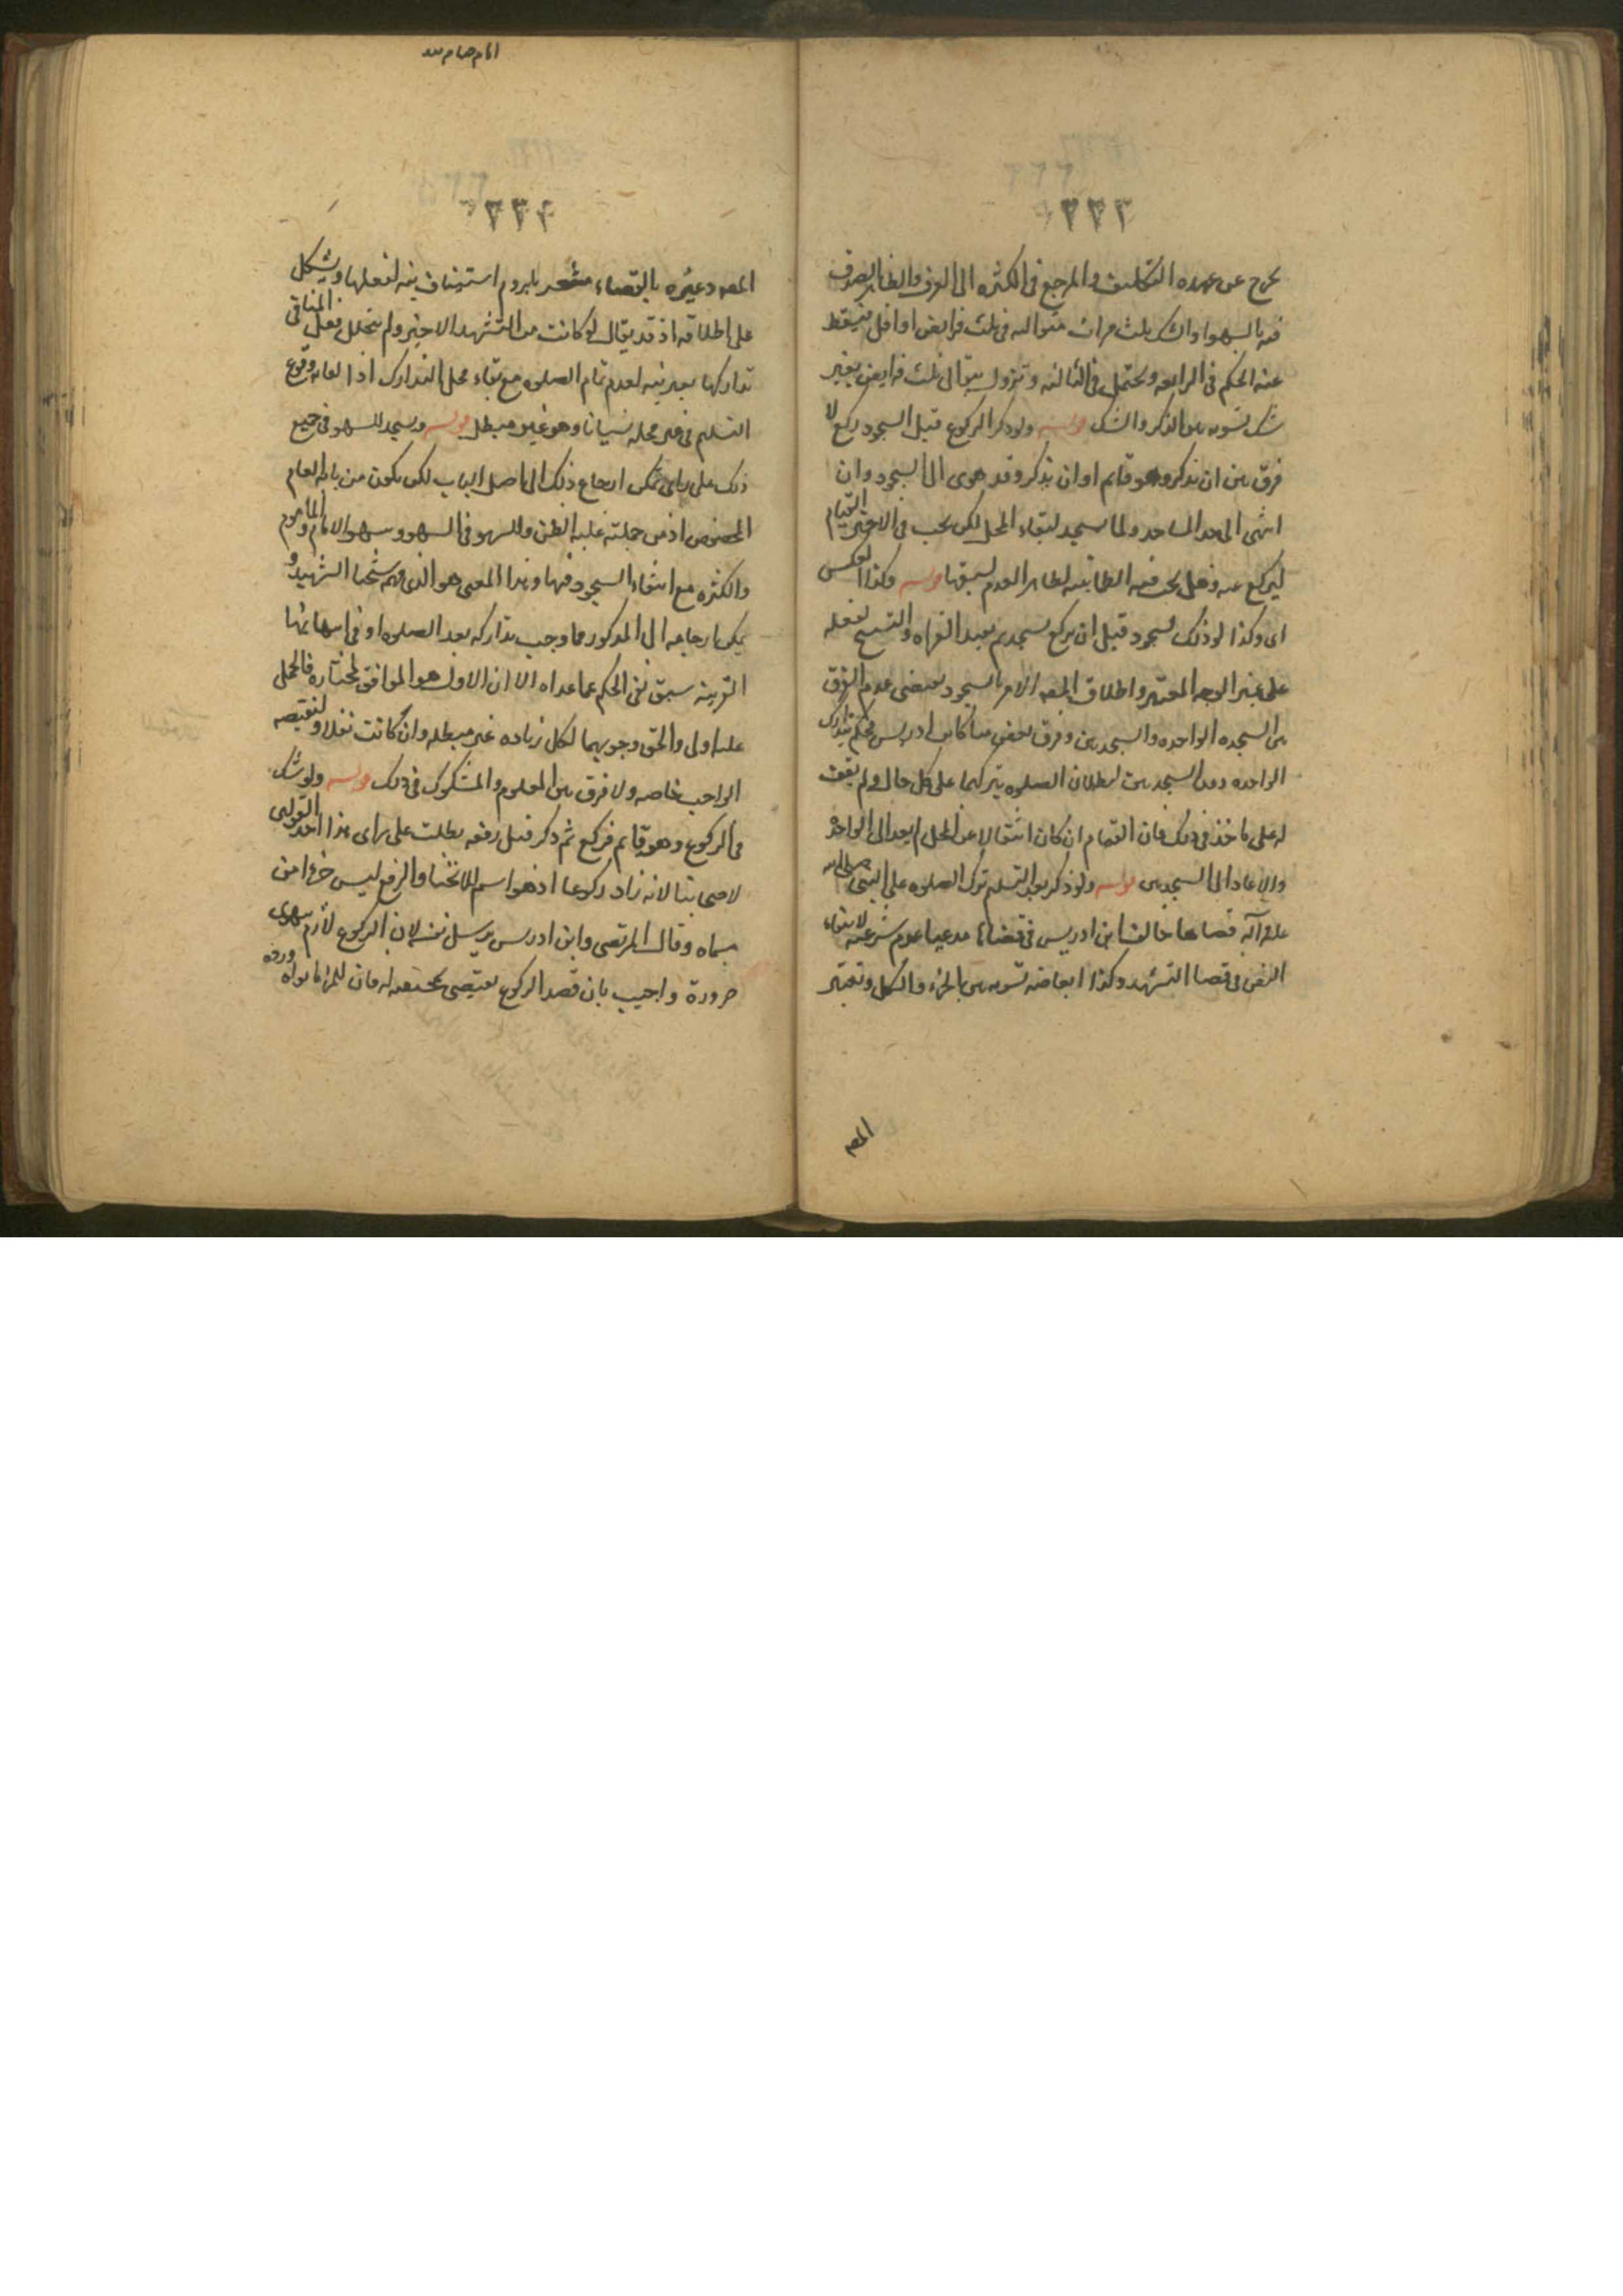 ٢٢٣
يخرج عن عهده التكليف والمرجع في الكثره الى العرف والظاهر الصدق
فيه بالسهو او الشك ثلث مرات متواليه في ثلث فرايض او اقل فيسقط
عنه الحكم في الرابعه ويحتمل في الثالثه وتزول بتوالى ثلث فرايض بغير
شك تسويه بين الذكر والشك قوله ولو ذكر الركوع قبل السجود ركع لا
فرق بين ان يذكر وهو قائم او ان يذكر وقد هوى الى السجود وان
انتهى الى حد الساجد ولما يسجد لبقاء المحل لكن يجب في الاخير القيام
ليركع عنه وهل يجب فيه الطمانينه الظاهر العدم لسبقها قوله وكذا العكس
اى وكذا لو ذكر السجود قبل ان يركع يسجد ثم يعيد القراه والتسبيح لفعله
على غير الوجه المعتبر واطلاق المصه الامر بالسجود يقتضى عدم الفرق
بين السجده الواحده والسجدتين وفرق بعض منا كابن ادريس فحكم بتدارك
الواحده دون السجدتين لبطلان الصلوه بتركهما على كل حال ولم نقف
له على ماخذ في ذلك فان القيام ان كان انتقالا عن المحل لم يعد الى الواحده
والا عاد الى السجدتين قوله ولو ذكر بعد التسليم ترك الصلوه على النبى صلى الله
عليه وآله قضاها خالف ابن ادريس في قضائها مدعيا عدم شرعيته لانتفاء
النص في قضا التشهد وكذا ابعاضه تسويه بين الجزء والكل وتعبير
المصه
٢٢٤
المصه وغيره بالقضاء مشعر بلزوم استيناف نيه لفعلها ويشكل
على اطلاقه اذ قد يقال لو كانت من التشهد الاخير ولم يتخلل فعل المنافى
تداركها بغير نيه لعدم تمام الصلوه مع بقاء محل التدارك اذ الغايه وقوع
التسليم في غير محله نسيانا وهو غير مبطل قوله ويسجد للسهو في جميع
ذلك على راى يمكن ارجاع ذلك الى اصل الباب لكن يكون من باب العام
المخصوص اذ من جملته غلبه الظن والسهو في السهو وسهو الامام والماموم
والكثره مع انتفاء السجود فيها وهذا المعنى هو الذى فهمه شيخنا الشهيد و
يمكن ارجاعه الى المذكور مما وجب تداركه بعد الصلوه او في اثنائها
القرينه سبق نفى الحكم عما عداه الا ان الاول هو الموافق لمختاره فالحمل
عليه اولى والحق وجوبهما لكل زياده غير مبطله وان كانت نفلا ولنقيصه
الواجب خاصه ولا فرق بين المعلوم والمشكوك في ذلك قوله ولو شك
في الركوع وهو قائم فركع ثم ذكر قبل رفعه بطلت على راى هذا احد القولين
لاصحابنا لانه زاد ركوعا اذ هو اسم للانحنا والرفع ليس جزءا من
مسماه وقال المرتضى وابن ادريس يرسل نفسه لان الركوع لازم يهوى
ضرورة واجيب بان قصد الركوع يقتضى تحققه له فان للمرء ما نواه